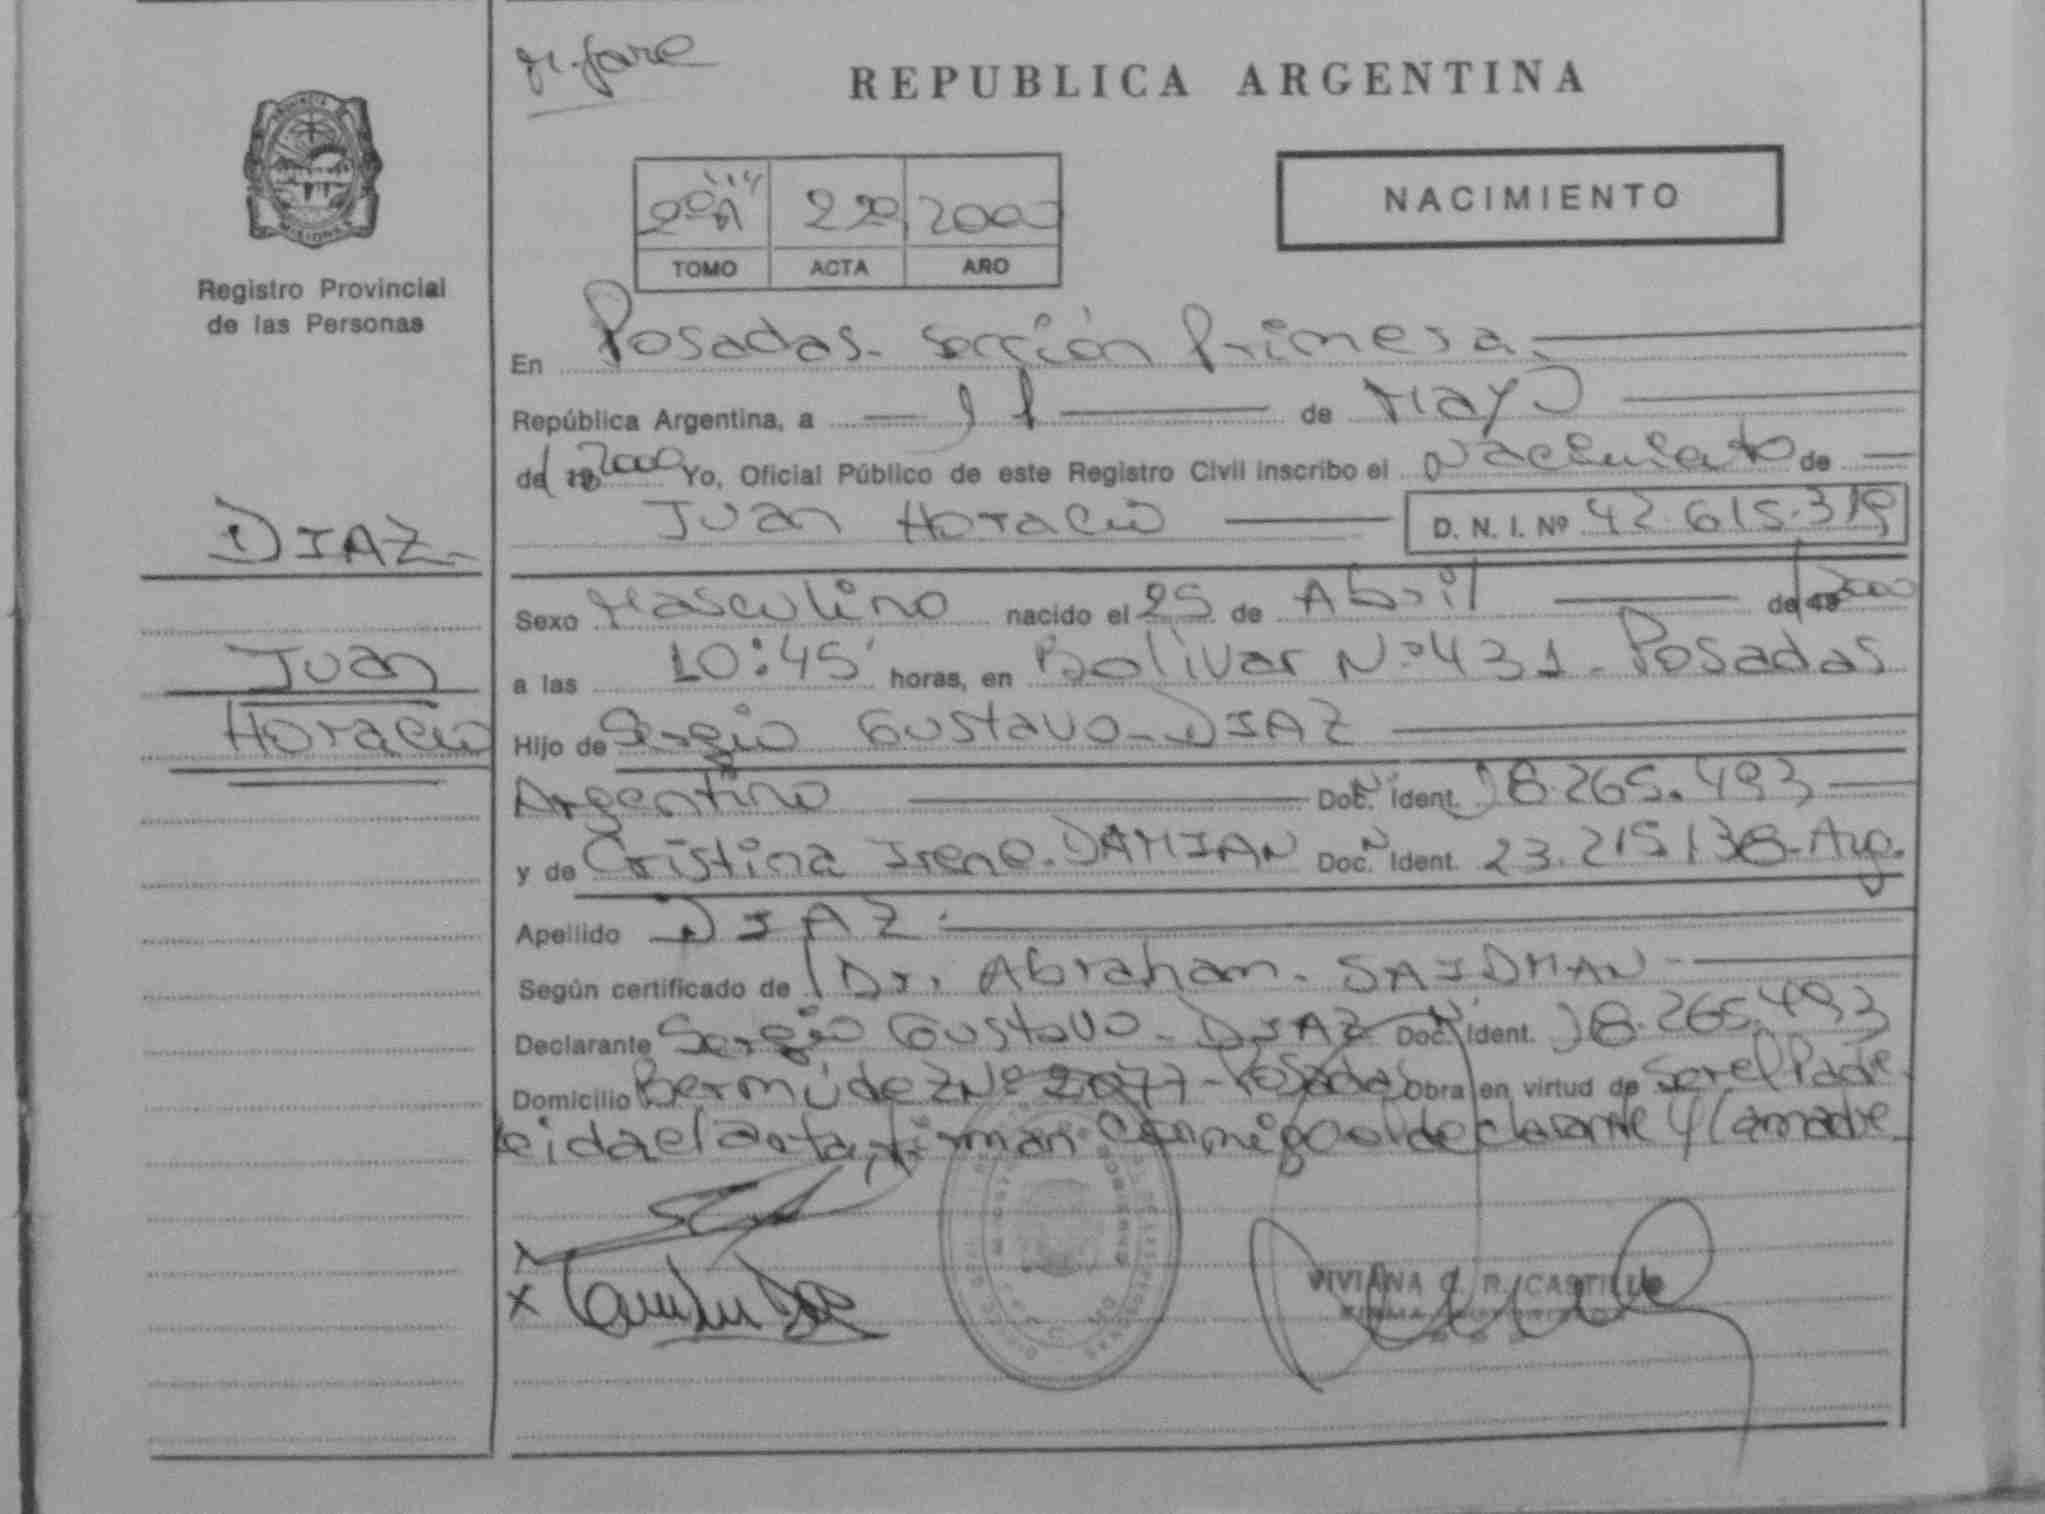 REPUBLICA ARGENTINA
NACIMIENTO
220 2000
TOMO ACTA AÑO
Registro Provincial
de las Personas
En Posadas - Sección Primera.
República Argentina, a 11 de Mayo
del 19 2000 Yo, Oficial Público de este Registro Civil inscribo el Nacimiento de
Juan Horacio D. N. I. Nº 42.615.319
DIAZ-
Juan
Horacio
Sexo Masculino nacido el 25 de Abril del 19 2000
a las 10:45' horas, en Bolivar Nº 431 - Posadas
Hijo de Sergio Gustavo - DIAZ
Argentino Doc. Nº Ident. 18.265.493
y de Cristina Irene. DAMIAN Doc. Nº Ident. 23.215.138 - Arg.
Apellido DIAZ.
Según certificado de l Dr. Abraham. SAIDMAN -
Declarante Sergio Gustavo - DIAZ Doc. Nº Ident. 18.265.493
Domicilio Bermúdez Nº 2077 - Posadas Obra en virtud de Ser el Padre
leida el acta, firman conmigo el declarante y la madre
VIVIANA R. CASTILLO